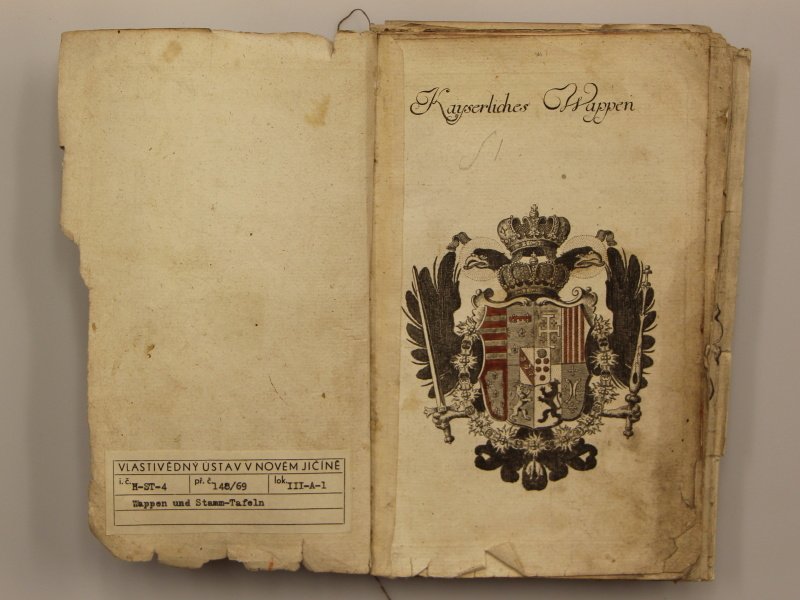 Kayserliches Wappen
VLASTIVĚDNÝ ÚSTAV V NOVÉM JIČÍNĚ
i. č. H-ST-4 př. č. 148/69 lok. III-A-1
Wappen und Stamm-Tafeln